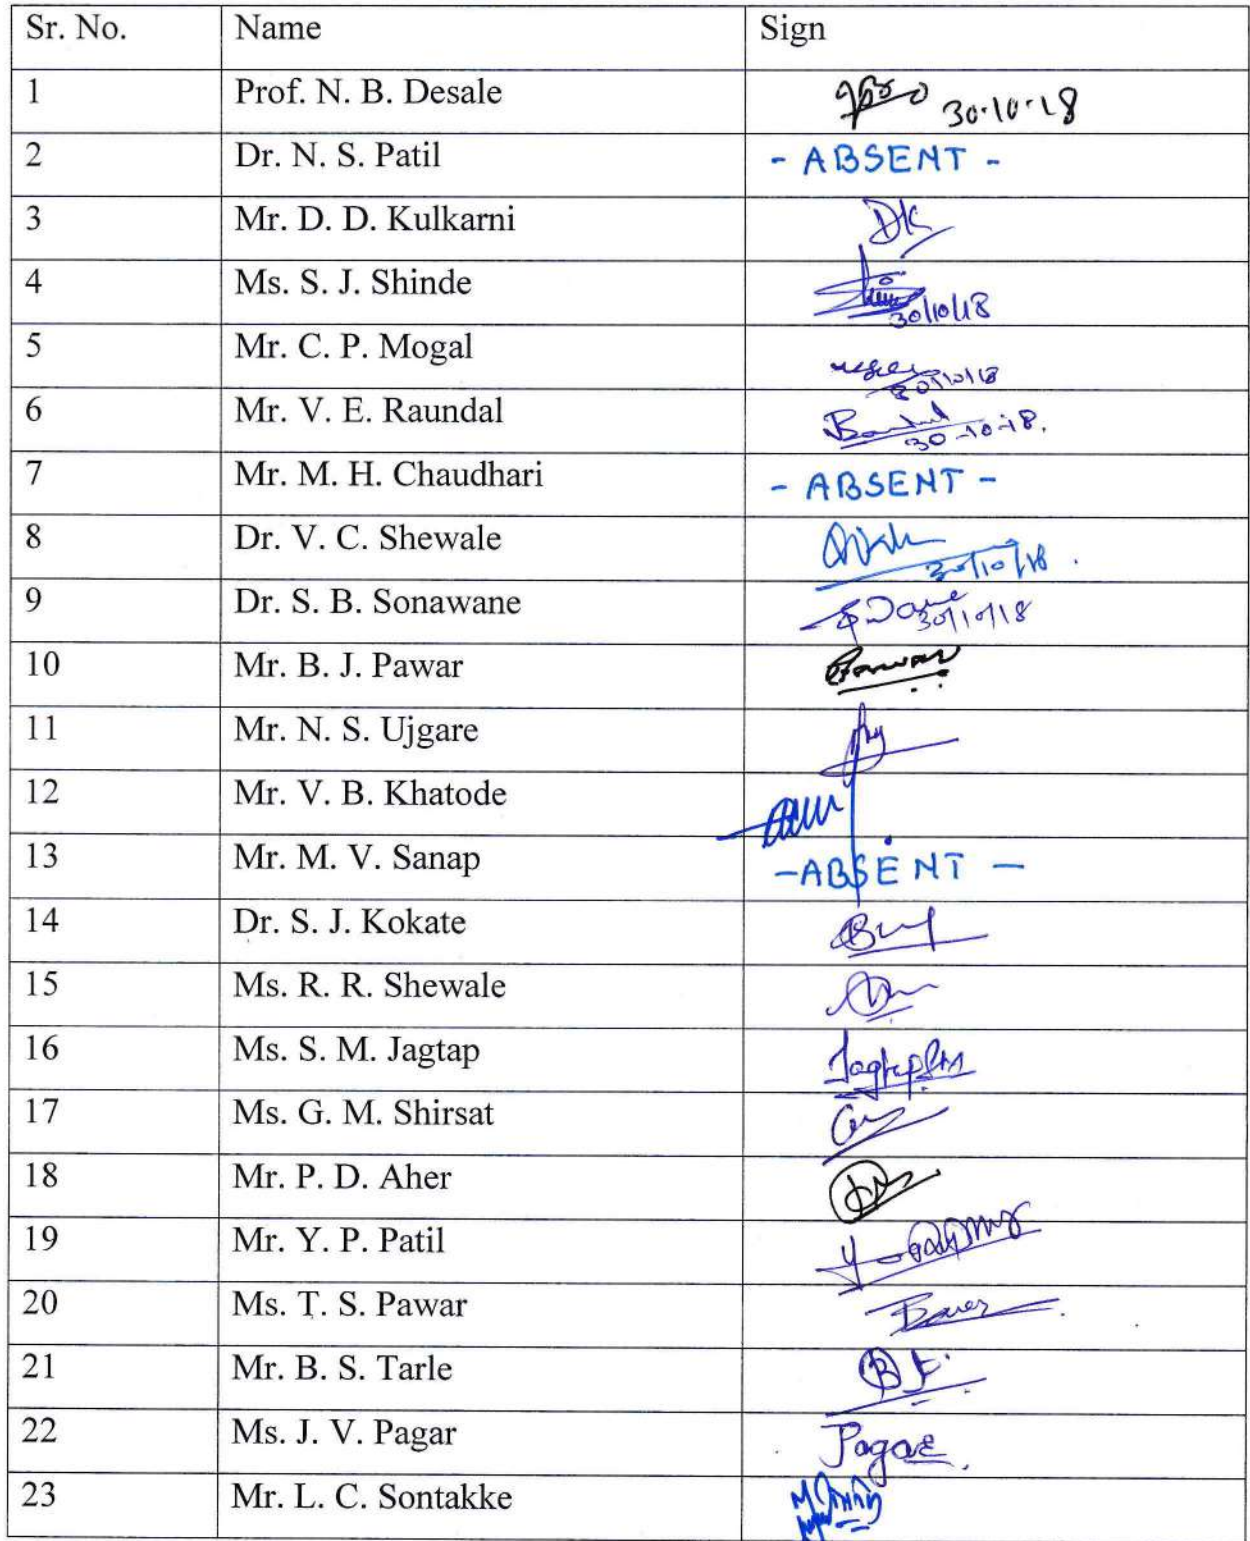 Sr. No. Name Sign
1 Prof. N. B. Desale 30-10-18
2 Dr. N. S. Patil - ABSENT -
3 Mr. D. D. Kulkarni DK
4 Ms. S. J. Shinde 30/10/18
5 Mr. C. P. Mogal 30/10/18
6 Mr. V. E. Raundal 30-10-18.
7 Mr. M. H. Chaudhari - ABSENT -
8 Dr. V. C. Shewale 30/10/18.
9 Dr. S. B. Sonawane 30/10/18
10 Mr. B. J. Pawar
11 Mr. N. S. Ujgare
12 Mr. V. B. Khatode
13 Mr. M. V. Sanap - ABSENT -
14 Dr. S. J. Kokate
15 Ms. R. R. Shewale
16 Ms. S. M. Jagtap
17 Ms. G. M. Shirsat
18 Mr. P. D. Aher
19 Mr. Y. P. Patil
20 Ms. T. S. Pawar
21 Mr. B. S. Tarle
22 Ms. J. V. Pagar Pagar.
23 Mr. L. C. Sontakke